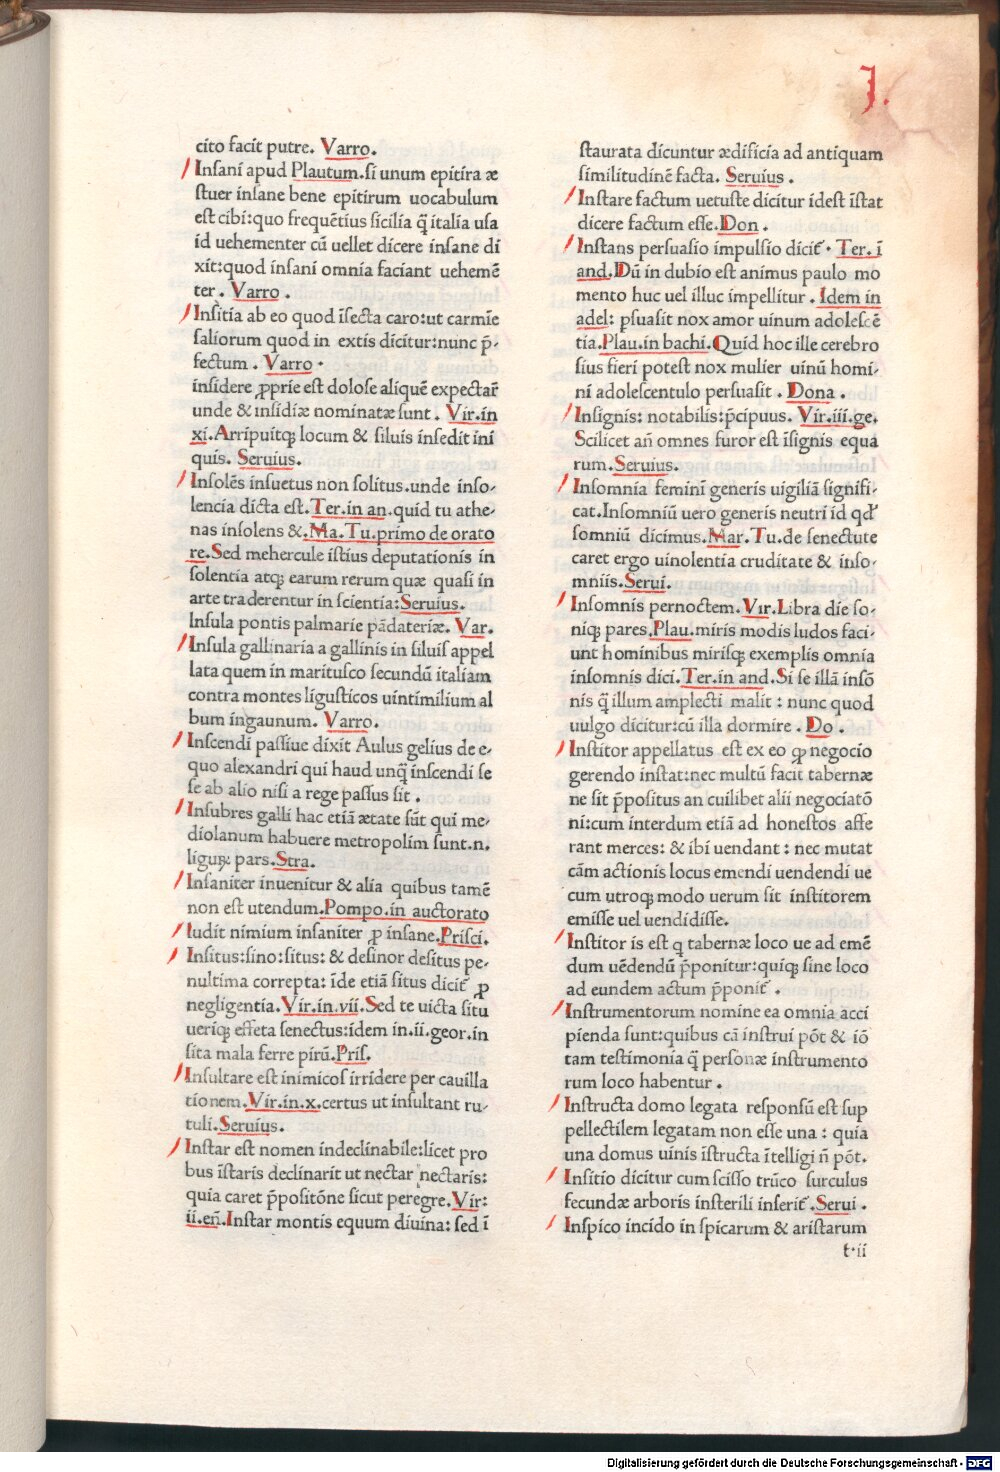 J.
cito facit putre. Varro.
Insani apud Plautum.si unum epitira æ
stuer insane bene epitirum uocabulum
est cibi:quo frequētius sicilia q̄ italia usa
id uehementer cū uellet dicere insane di
xit:quod insani omnia faciant uehemē
ter . Varro .
Insitia ab eo quod īsecta caro:ut carmīe
saliorum quod in extis dicitur:nunc p̄-
fectum . Varro .
insidere ꝓprie est dolose aliquē expectar̄
unde & insidiæ nominatæ sunt . Vir.in
xi.Arripuitqꝫ locum & siluis insedit ini
quis. Seruius.
Insolēs insuetus non solitus.unde inso-
lencia dicta est.Ter.in an.quid tu athe-
nas insolens &.Ma.Tu.primo de orato
re.Sed mehercule istius deputationis in
solentia atqꝫ earum rerum quæ quasi in
arte traderentur in scientia:Seruius.
Insula pontis palmarie pādateriæ. Var.
Insula gallinaria a gallinis in siluis appel
lata quem in maritusco secundū italiam
contra montes ligusticos uintimilium al
bum ingaunum. Varro.
Inscendi passiue dixit Aulus gelius de e-
quo alexandri qui haud unq̄ inscendi se
se ab alio nisi a rege passus sit .
Insubres galli hac etiā ætate sūt qui me-
diolanum habuere metropolim sunt.n.
liguꝝ pars.Stra.
Insaniter inuenitur & alia quibus tamē
non est utendum.Pompo.in auctorato
ludit nimium insaniter ꝓ insane.Prisci.
Insitus:sino:situs: & desinor desitus pe-
nultima correpta: īde etiā situs dicit̄ ꝓ
negligentia. Vir.in.vii.Sed te uicta situ
ueriqꝫ effeta senectus:idem in.ii.geor.in
sita mala ferre pirū.Pris.
Insultare est inimicos irridere per cauilla
tionem.Vir.in.x.certus ut insultant ru-
tuli.Seruius.
Instar est nomen indeclinabile:licet pro
bus īstaris declinarit ut nectar nectaris:
quia caret p̄positōne sicut peregre.Vir:
ii.en̄.Instar montis equum diuina: sed ī
staurata dicuntur ædificia ad antiquam
similitudinē facta. Seruius .
Instare factum uetuste dicitur idest īstat
dicere factum esse.Don .
Instans persuasio impulsio dicit̄ . Ter. ī
and.Dū in dubio est animus paulo mo
mento huc uel illuc impellitur . Idem in
adel: ꝑsuasit nox amor uinum adolescē
tia.Plau.in bachi.Quid hoc ille cerebro
sius fieri potest nox mulier uinū homi-
ni adolescentulo persuasit . Dona .
Insignis: notabilis:p̄cipuus. Vir.iii.ge.
Scilicet an̄ omnes furor est īsignis equa
rum.Seruius.
Insomnia feminī generis uigiliā signifi-
cat.Insomniū uero generis neutri id qđ
somniū dicimus.Mar. Tu.de senectute
caret ergo uinolentia cruditate & inso-
mniis.Serui.
Insomnis pernoctem. Vir.Libra die so-
niqꝫ pares.Plau.miris modis ludos faci-
unt hominibus mirisqꝫ exemplis omnia
insomnis dici.Ter.in and.Si se illā insō
nis q̄ illum amplecti malit : nunc quod
uulgo dicitur:cū illa dormire . Do .
Institor appellatus est ex eo ꝙ negocio
gerendo instat:nec multū facit tabernæ
ne sit p̄positus an cuilibet alii negociatō
ni:cum interdum etiā ad honestos affe
rant merces: & ibi uendant : nec mutat
cām actionis locus emendi uendendi ue
cum utroqꝫ modo uerum sit institorem
emisse uel uendidisse.
Institor is est q tabernæ loco ue ad emē
dum uēdendū p̄ponitur:quiqꝫ sine loco
ad eundem actum p̄ponit̄ .
Instrumentorum nomine ea omnia acci
pienda sunt:quibus cā instrui pōt & iō
tam testimonia q̄ personæ instrumento
rum loco habentur .
Instructa domo legata responsū est sup
pellectilem legatam non esse una : quia
una domus uinis īstructa ītelligi n̄ pōt.
Insitio dicitur cum scisso trūco surculus
fecundæ arboris insterili inserit̄ .Serui .
Inspico incido in spicarum & aristarum
t.ii
Digitalisierung gefördert durch die Deutsche Forschungsgemeinschaft - DFG